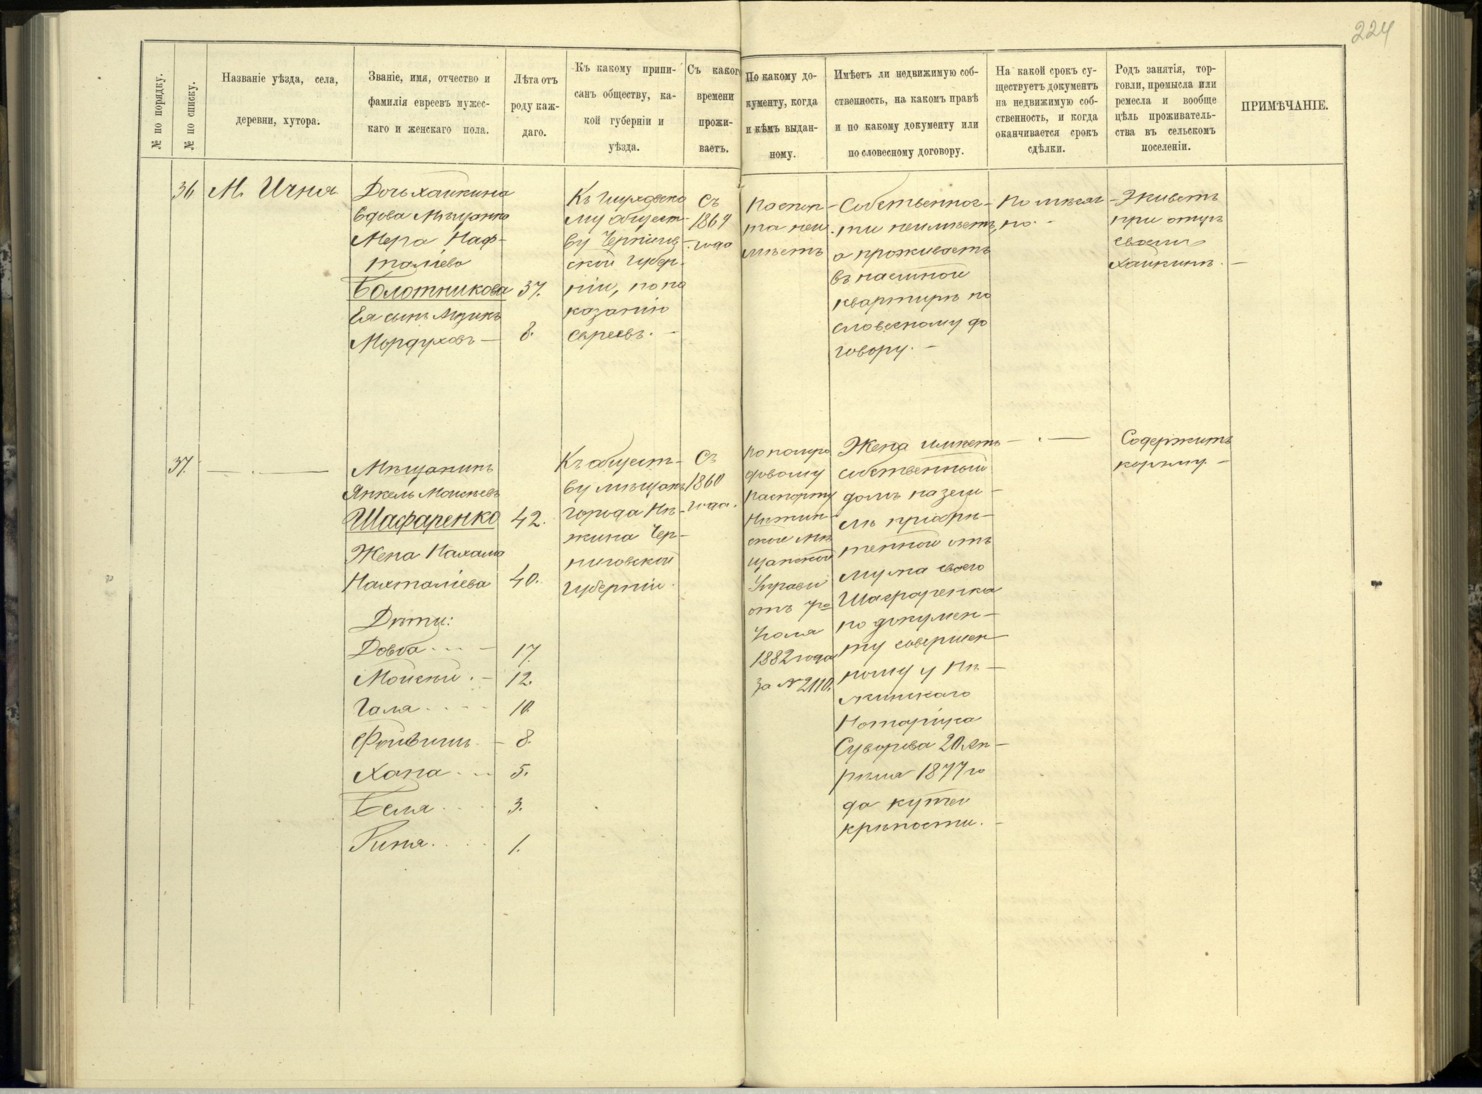 224
№ по порядку.
№ по списку.
Названіе уѣзда, села,
деревни, хутора.
Званіе, имя, отчество и
фамилія евреевъ мужес-
каго и женскаго пола.
Лѣта отъ
роду каж-
даго.
Къ какому припи-
санъ обществу, ка-
кой губерніи и
уѣзда.
Съ какого
времени
прожи-
ваетъ.
По какому до-
кументу, когда
и кѣмъ выдан-
ному.
Имѣетъ ли недвижимую соб-
ственность, на какомъ правѣ
и по какому документу или
по словесному договору.
На какой срокъ су-
ществуетъ документъ
на недвижимую соб-
ственность, и когда
оканчивается срокъ
сдѣлки.
Родъ занятія, тор-
говли, промысла или
ремесла и вообще
цѣль проживатель-
ства въ сельскомъ
поселеніи.
ПРИМѢЧАНІЕ.
36
М. Ичня
Дочь Хайкина
вдова Мѣщанка
Мера Наф-
таліева
Болотникова 37.
Ея сынъ
Мордуховъ — 8.
Къ Глуховско
му общест-
ву Чернигов
ской губер-
ніи, по по
казанію
евреевъ. —
Съ
1869
года
Паспор-
та неи
мѣетъ
Собственнос-
ти неимѣетъ,
а проживаетъ
въ наемной
квартирѣ по
словесному до
говору. —
Живетъ
при отцѣ
своемъ
Хайкинѣ. —
37.
— . —
Мѣщанинъ
Янкель Моисеевъ
Шафаренко 42.
Жена Нахама
Нахталіева 40.
Дѣти:
Довба — 17
Мойсей — 12.
Галя 10.
Фейвишъ — 8.
Хана 5.
Беля 3.
Риня 1.
Къ общест-
ву мѣщанъ
города Нѣ-
жина Чер-
ниговской
Губерніи.
Съ
1860
года.
По полуго
довому
паспорту
Нѣжин-
ской Мѣ
щанской
Управы
отъ 7го
Іюля
1882 года
за № 2110.
Жена имѣетъ
собственный
домъ на зем-
лѣ пріобрѣ-
тенной отъ
мужа своего
Шафаренка
по докумен-
ту совершен-
ному у Нѣ-
жинскаго
Нотаріуса
Суворова 20 Ап-
рѣля 1877 го
да купчей
крѣпости. —
— . —
Содержитъ
корчму. —